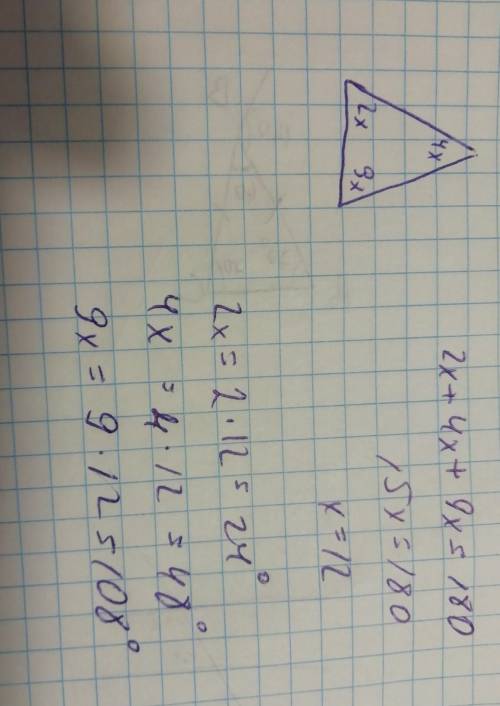 4x
2x
9x
2x + 4x + 9x = 180
15x = 180
x = 12
2x = 2 · 12 = 24°
4x = 4 · 12 = 48°
9x = 9 · 12 = 108°